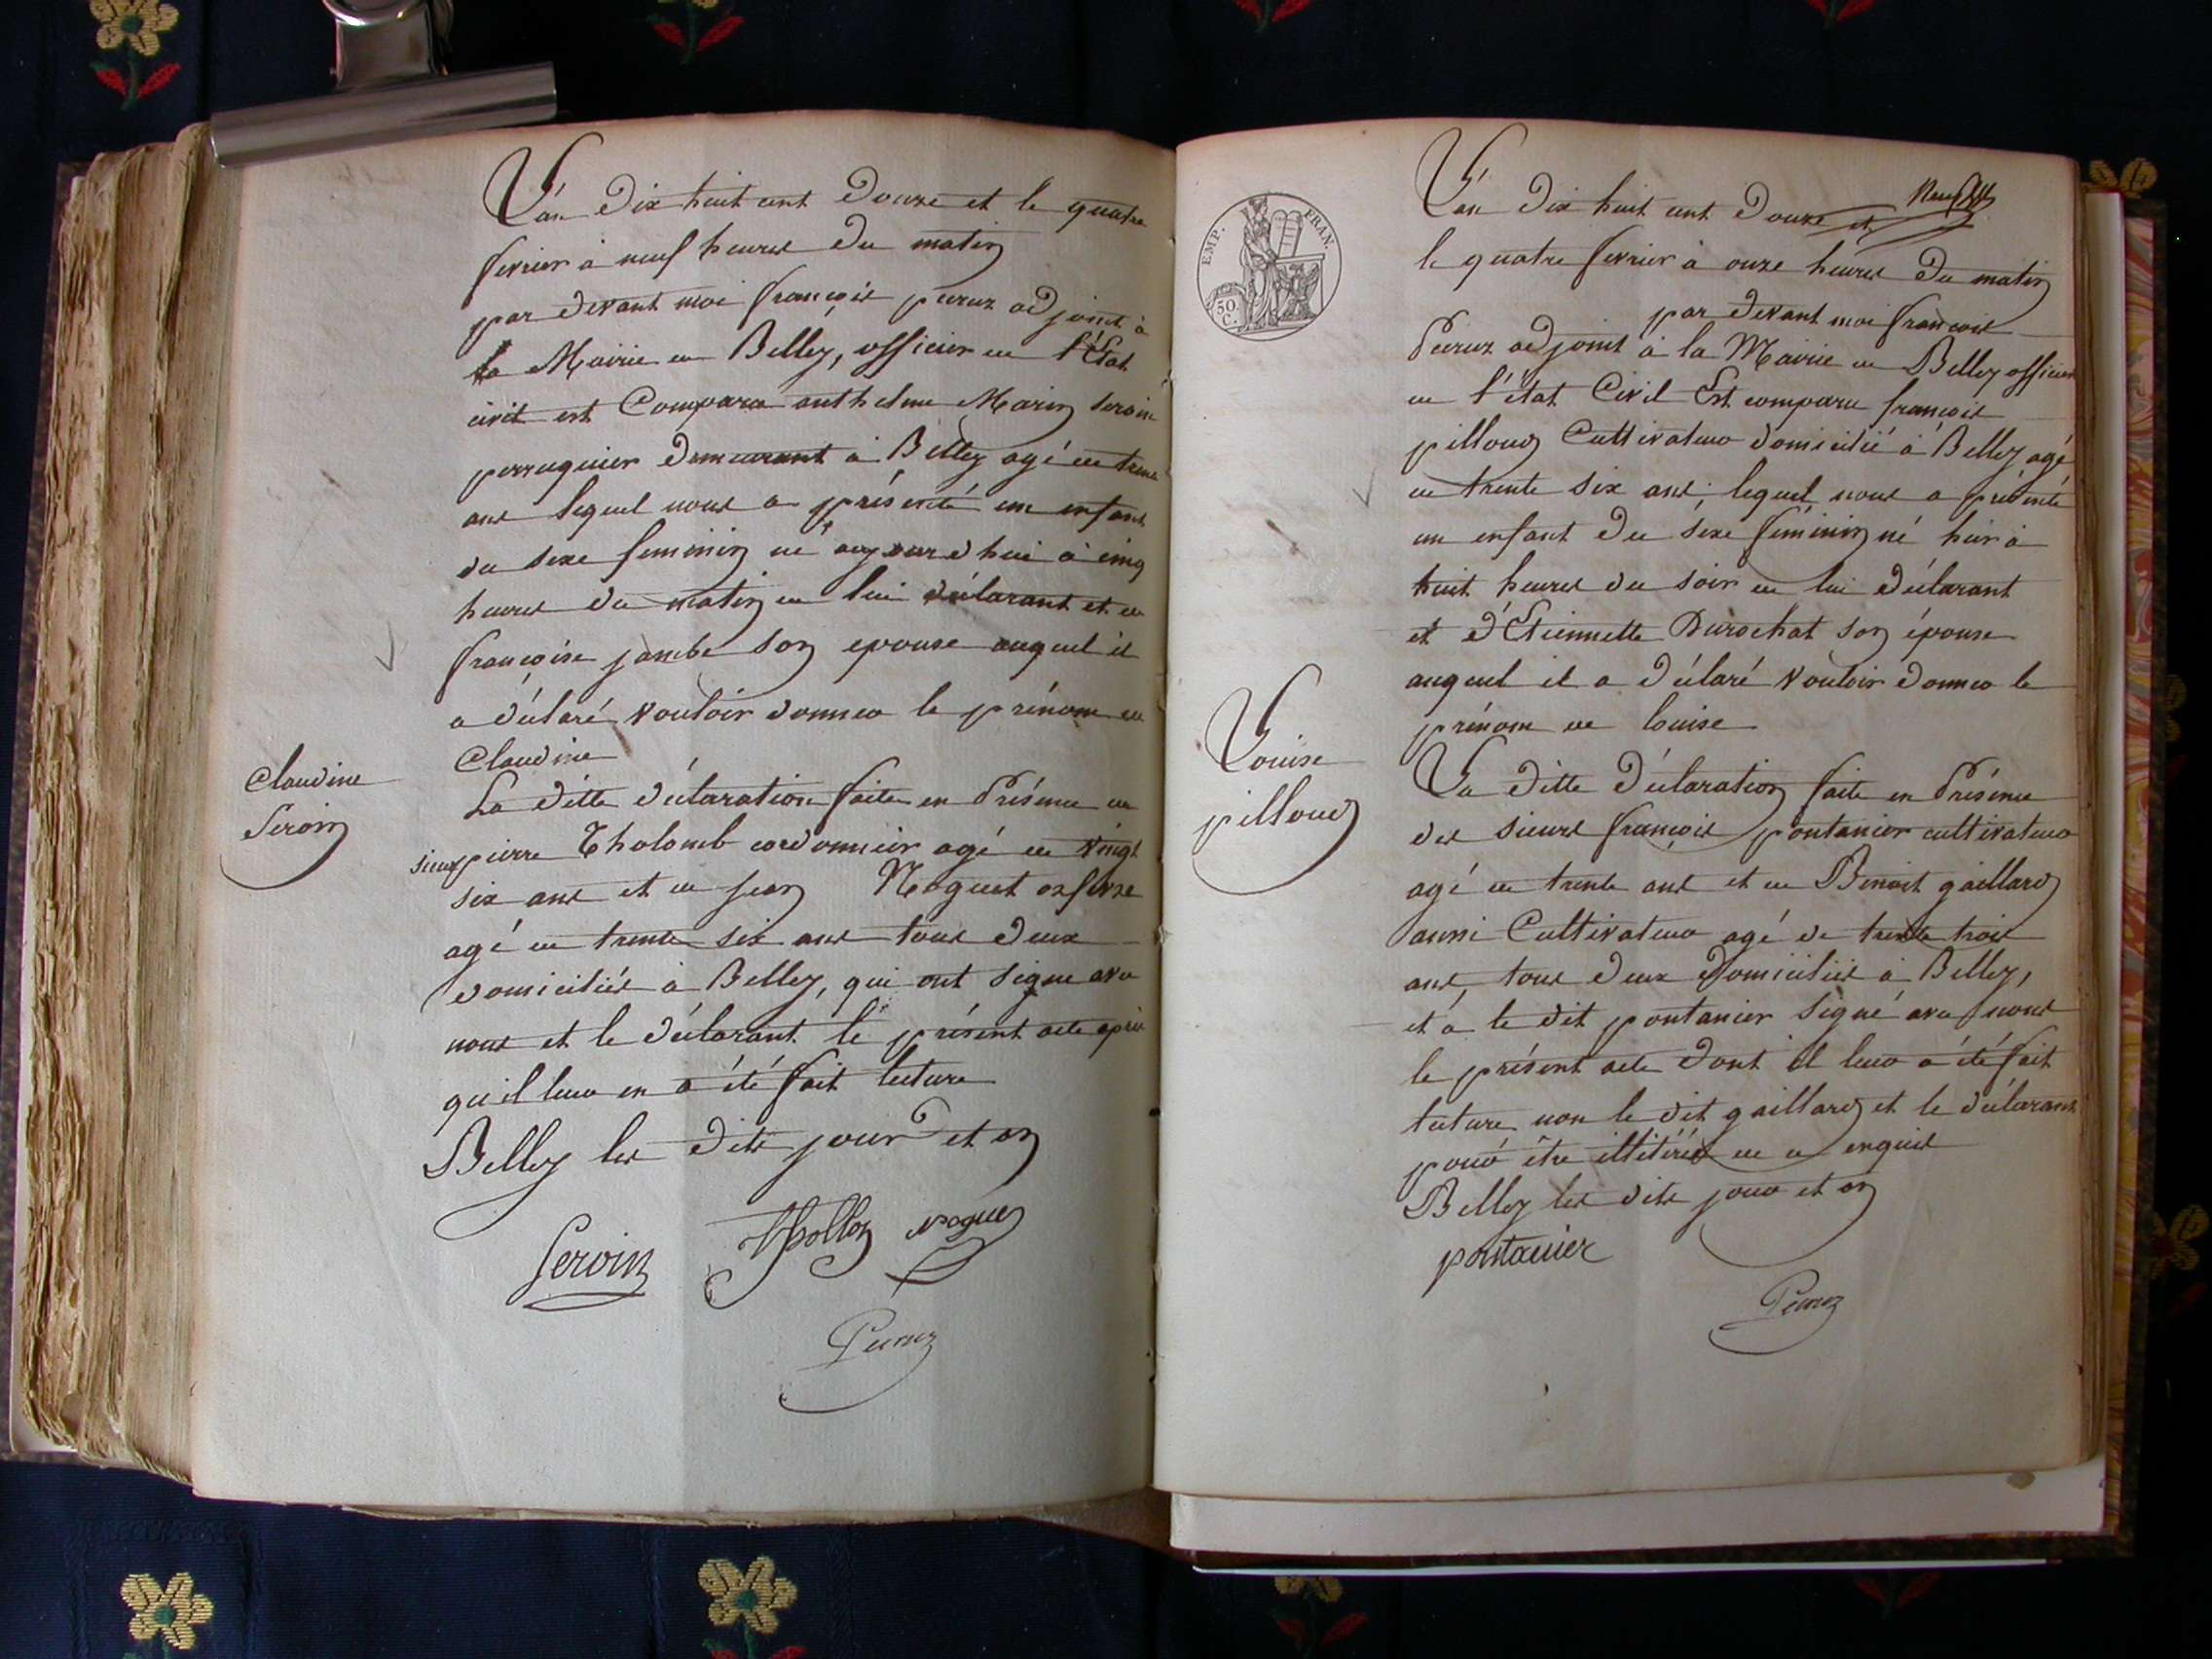 L'an dix huit cent douze et le quatre
fevrier à neuf heures du matin
par devant moi françois peruz adjoint à
la Mairie de Belley, officier de l'État
civil est Comparu anthelme Marin seroin
perruquier demeurant à Belley agé de trente
ans lequel nous a présenté un enfant
du sexe feminin né aujourd'hui à cinq
heures du matin de lui déclarant et de
françoise jambe son epouse auquel il
a déclaré vouloir donner le prénom de
Claudine
Claudine
Seroin
La ditte déclaration faite en Présence de
sieurs pierre Tholomb cordonnier agé de vingt
six ans et de jean Noguet orfevre
agé de trente six ans tous deux
domiciliés à Belley, qui ont signe avec
nous et le déclarant le présent acte après
qu'il leur en a été fait lecture
Belley les dits jour et an
Seroin noguet
Peruz
EMP. FRAN.
50 C.
L'an dix huit cent douze et
le quatre fevrier à onze heures du matin
par devant moi françois
Peruz adjoint à la Mairie de Belley officier
de l'état Civil Est comparu françois
pilloud Cultivateur domicilié à Belley agé
de trente six ans, lequel nous a présenté
un enfant du sexe féminin né hier à
huit heures du soir de lui déclarant
et d'Etiennette Durochat son épouse
auquel il a déclaré vouloir donner le
prénom de louise
Louise
pilloud
La ditte déclaration faite en Présence
des sieurs françois pontanier cultivateur
agé de trente ans et de Benoit gaillard
aussi Cultivateur agé de trente trois
ans, tous deux domiciliés à Belley,
et a le dit pontanier signé avec nous
le présent acte dont il leur a été fait
lecture non le dit gaillard et le déclarant
pour être illitérés de ce enquis
Belley les dits jour et an
pontanier
Peruz